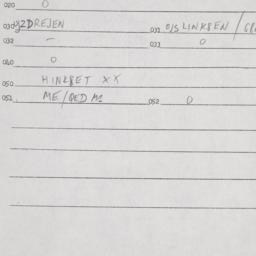 020 0
030 YZDREJEN 031 O/S LINKSEN /
032 - 033 0
040 0
050 HINKBET XX
051 ME/QED M2 052 0